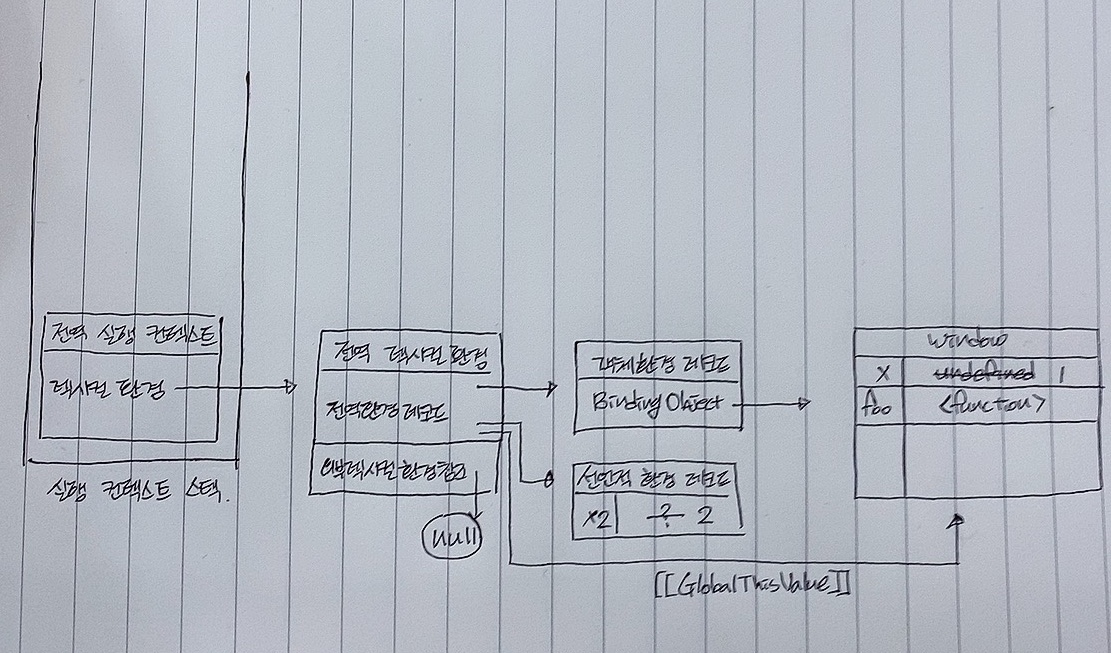 전역 실행 컨텍스트
렉시컬 환경
실행 컨텍스트 스택.
전역 렉시컬 환경
전역환경 레코드
외부렉시컬환경참조
null
객체환경 레코드
Binding Object
선언적 환경 레코드
x2 ? 2
window
x undefined 1
foo <function>
[[GlobalThisValue]]